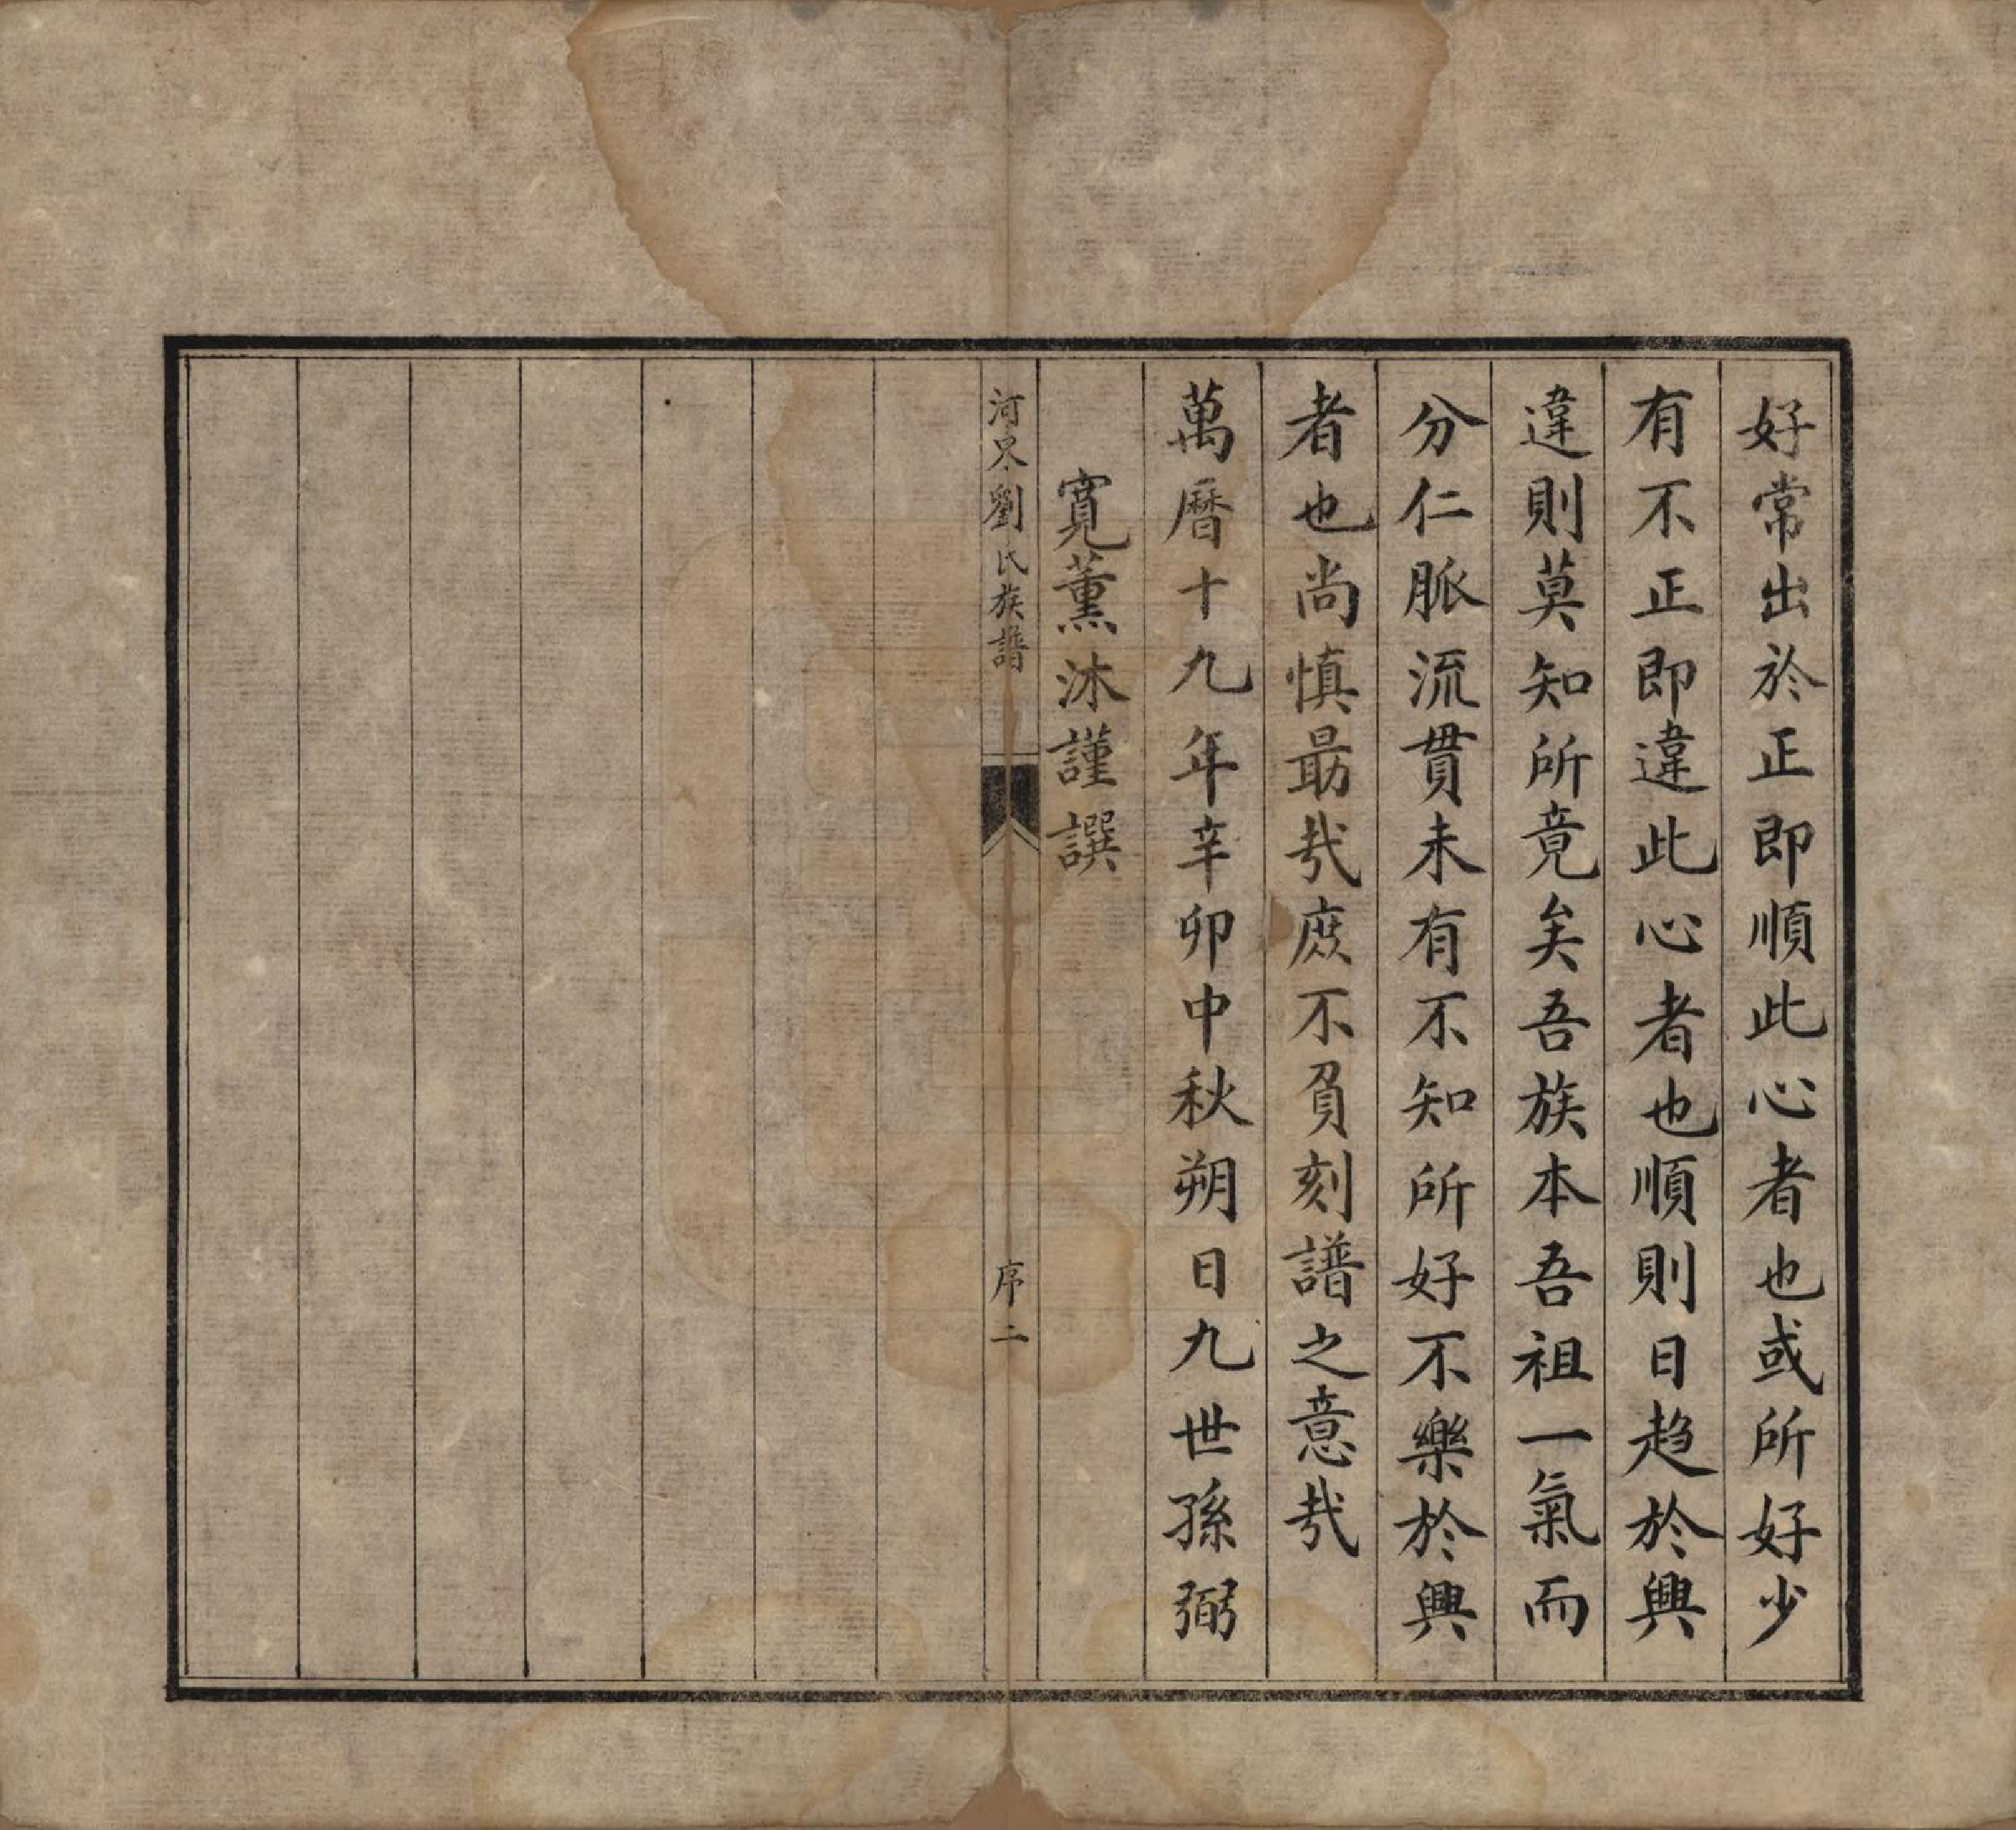 好常出於正即順此心者也或所好少
有不正即違此心者也順則日趋於興
違則莫知所竟矣吾族本吾祖一氣而
分仁脈流貫未有不知所好不樂於興
者也尚慎勗哉庶不負刻譜之意哉
萬曆十九年辛卯中秋朔日九世孫弼
寬薰沐謹譔
河呆劉氏族譜
序二